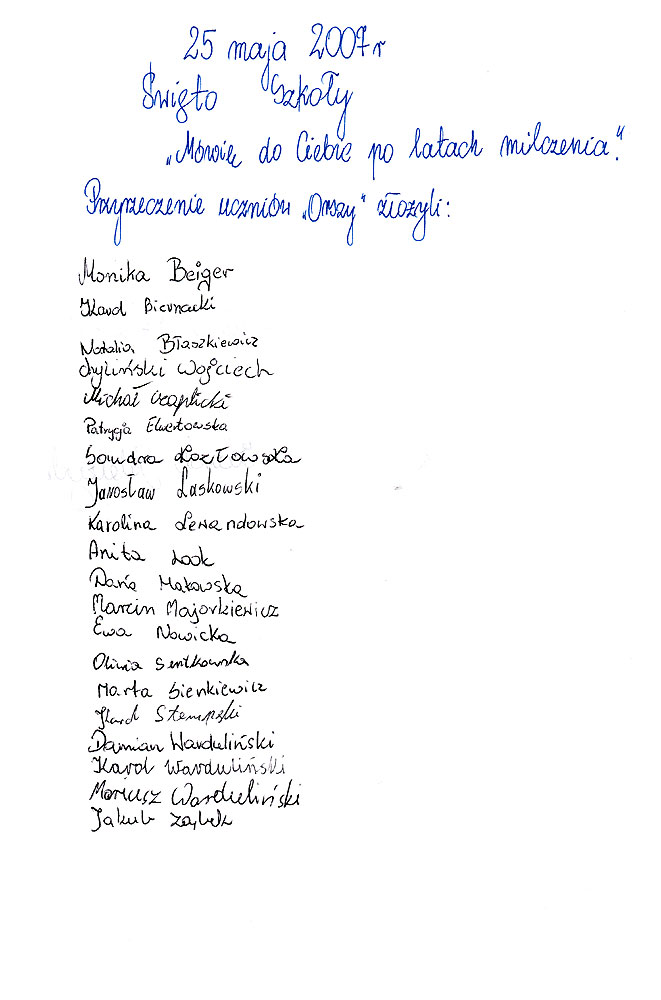 25 maja 2007 r
Święto Szkoły
„Mówię do Ciebie po latach milczenia."
Przyrzeczenie uczniów „Orszy" złożyli:
Monika Beiger
Karol Biernacki
Natalia Błaszkiewicz
Chyliński Wojciech
Michał Czaplicki
Patrycja Elwertowska
Sandra Kozłowska
Jarosław Laskowski
Karolina Lewandowska
Anita Look
Daria Makowska
Marcin Majorkiewicz
Ewa Nowicka
Oliwia Sentkowska
Marta Sienkiewicz
Karol Stempski
Damian Warduliński
Karol Warduliński
Mariusz Warduliński
Jakub